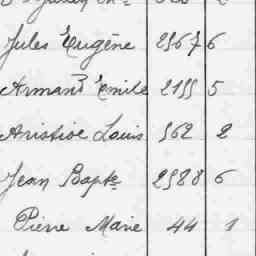 Jules Eugène 2967 6
Armand Emile 2199 5
Aristide Louis 962 2
Jean Bapte 2988 6
Pierre Marie 44 1